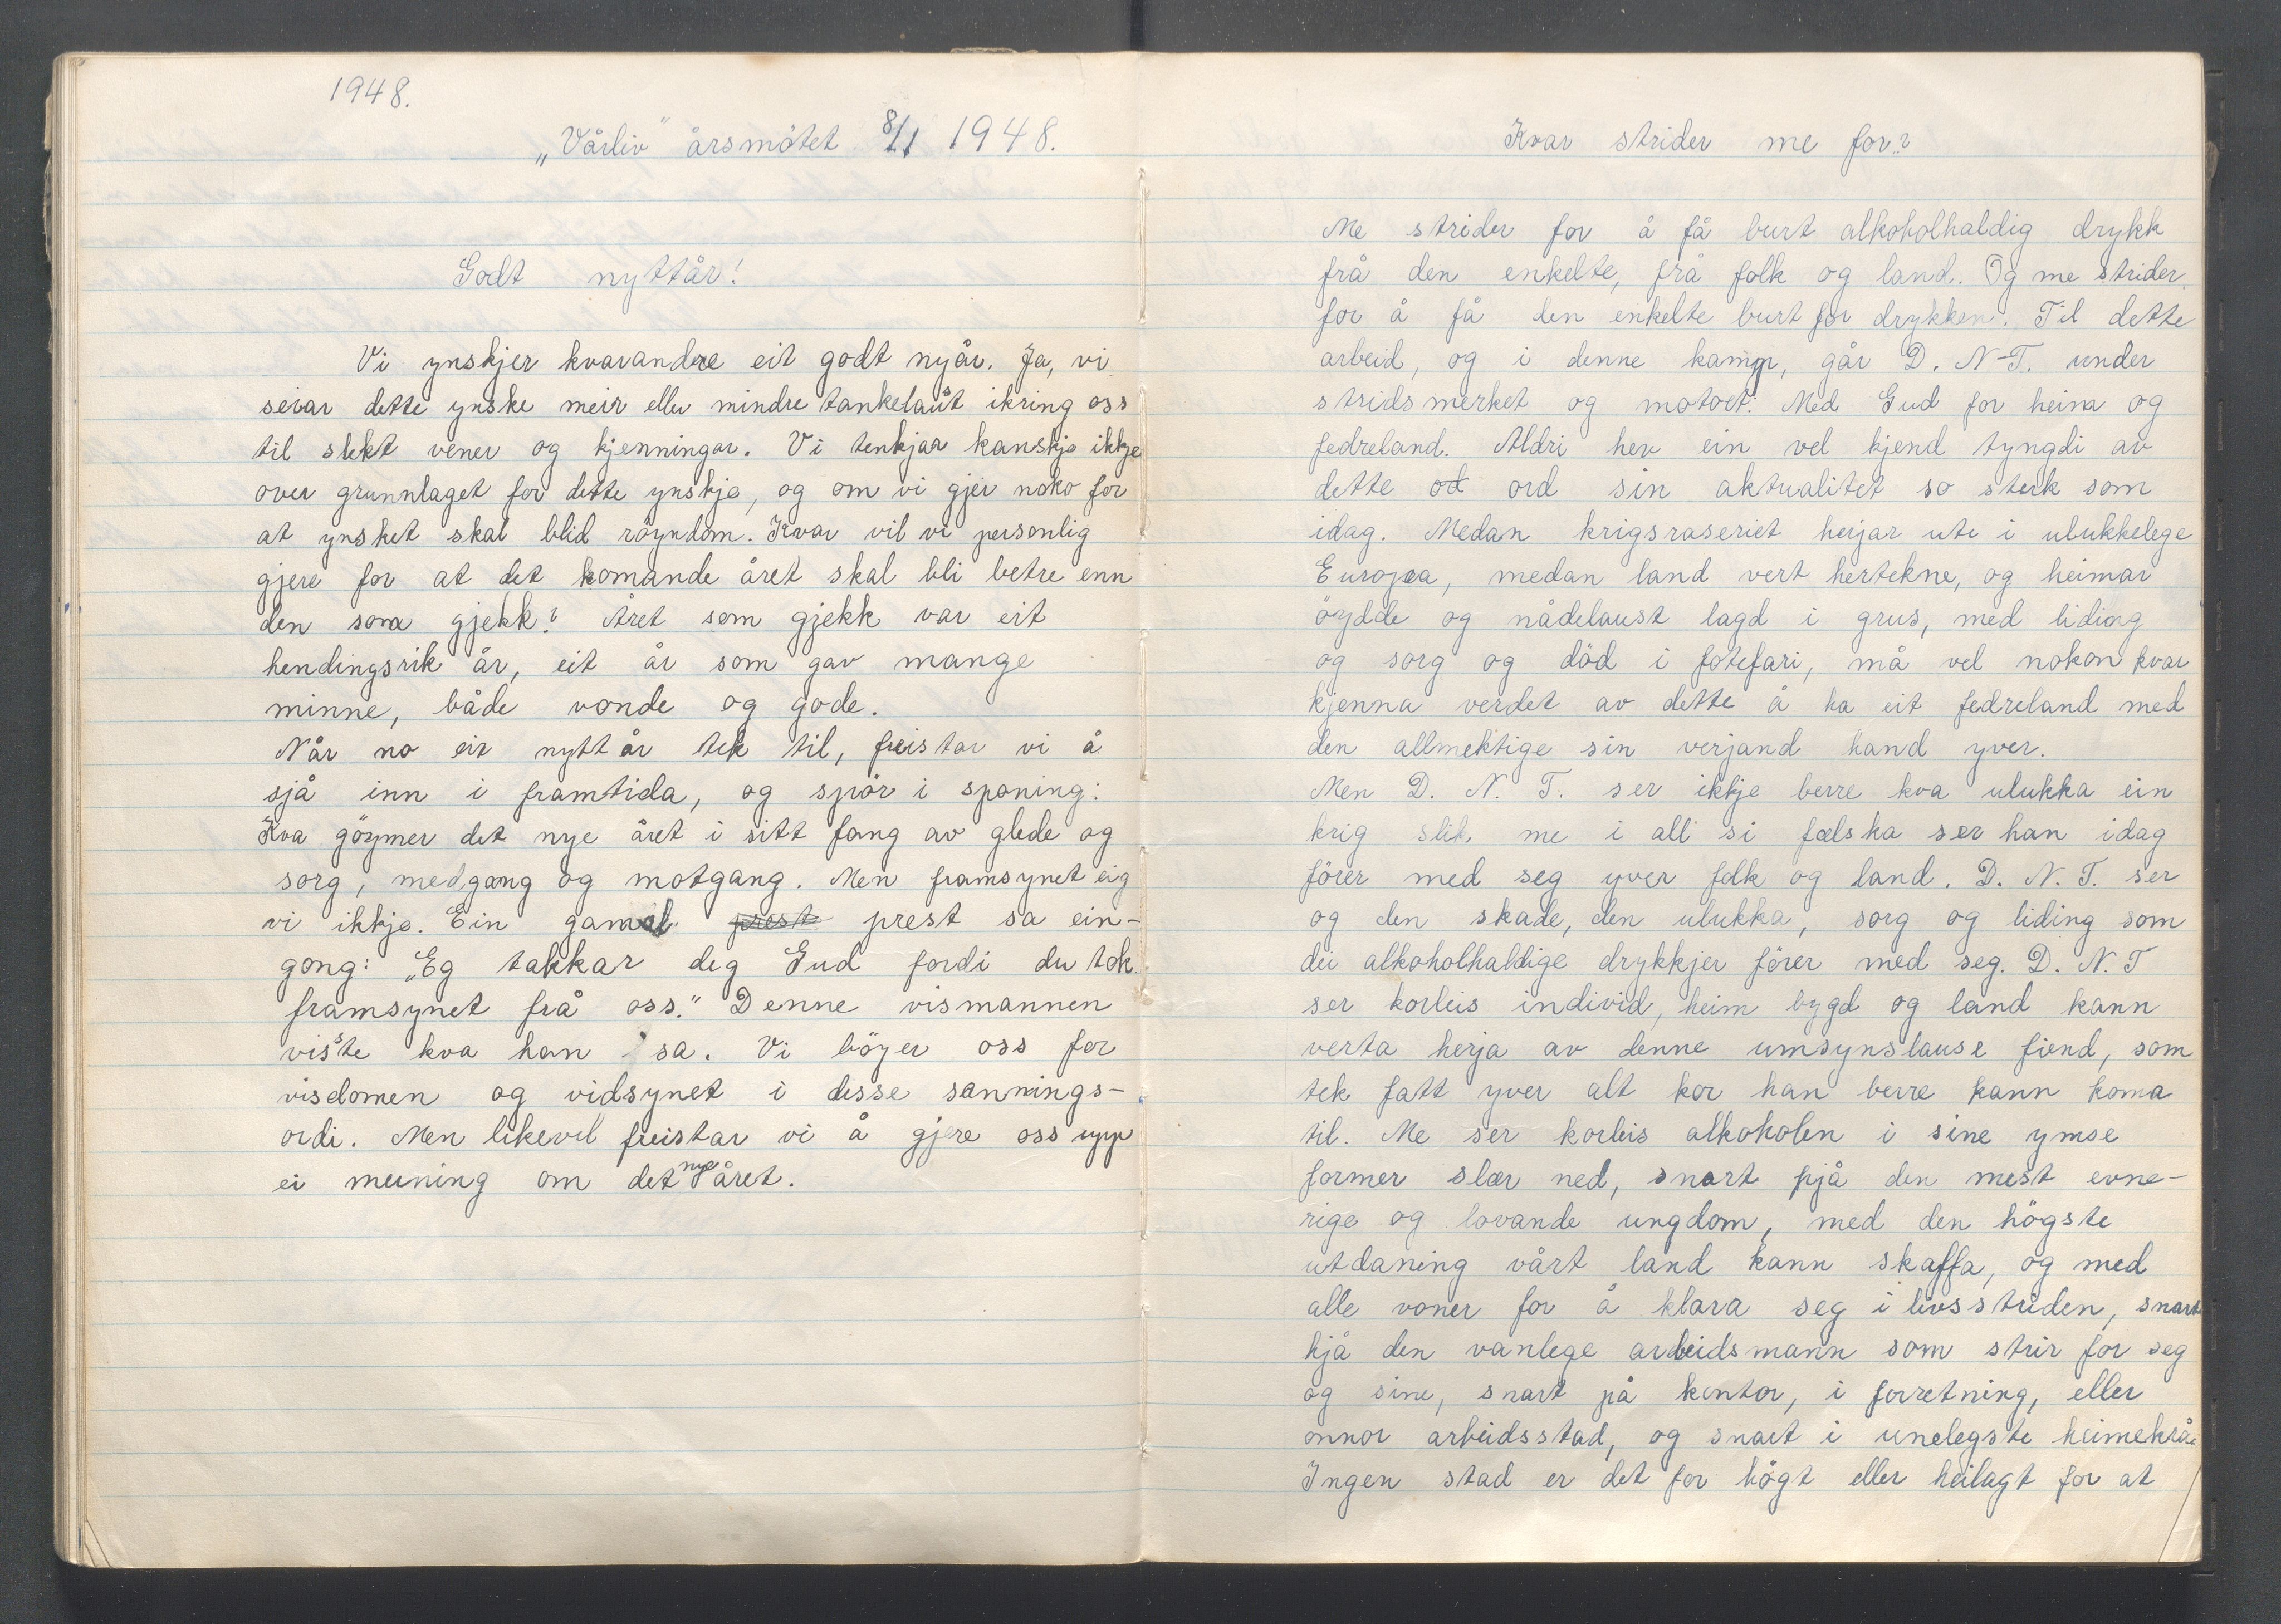 1948.
„Vårliv" årsmötet 8/1 1948.
Godt nyttår!
Vi ynskjer kvarandre eit godt nyår. Ja, vi
seiar dette ynske meir eller mindre tankelaust ikring oss
til slekt vener og kjenningar. Vi tenkjar kanskje ikkje
over grunnlaget for dette ynskje, og om vi gjer noko for
at ynsket skal blid röyndom. Kvar vil vi personlig
gjere for at det komande året skal bli betre enn
den som gjekk? Året som gjekk var eit
hendingsrik år, eit år som gav mange
minne, både vonde og gode.
Når no eit nytt år tek til, freistar vi å
sjå inn i framtida, og spör i spaning:
Kva göymer det nye året i sitt fang av glede og
sorg, medgang og motgang. Men framsynet eig
vi ikkje. Ein gamal prest prest sa ein-
gong: „Eg takkar deg Gud fordi du tok
framsynet frå oss." Denne vismannen
visste kva han sa. Vi böyer oss for
visdomen og vidsynet i desse sannings-
ordi. Men likevel freistar vi å gjere oss upp
ei meining om det nye året.
Kvar strider me for?
Me strider for å få burt alkoholhaldig drykk
frå den enkelte, frå folk og land. Og me strider
for å få den enkelte burt for drykken. Til dette
arbeid, og i denne kamp, går D. N-T. under
stridsmerket og motoet: Med Gud for heim og
fedreland. Aldri hev ein vel kjend tyngdi av
dette od ord sin aktualitet so sterk som
idag. Medan krigsraseriet herjar ute i ulukkelege
Europa, medan land vert hertekne, og heimar
öydde og nådelaust lagd i grus, med liding
og sorg og död i fotefari, må vel nokon kvar
kjenna verdet av dette å ha eit fedreland med
den allmektige sin verjand hand yver.
Men D. N. T. ser ikkje berre kva ulukka ein
krig slik me i all si fælska ser han idag
förer med seg yver folk og land. D. N. T. ser
og den skade, den ulukka, sorg og liding som
dei alkoholhaldige drykkjer förer med seg. D. N. T
ser korleis individ, heim bygd og land kann
verta herja av denne umsynslause fiend, som
tek fatt yver alt kor han berre kann koma
til. Me ser korleis alkoholen i sine ymse
former slær ned, snart hjå den mest evne-
rige og lovande ungdom, med den högste
utdaning vårt land kann skaffa, og med
alle voner for å klara seg i livsstriden, snart
hjå den vanlege arbeidsmann som strir for seg
og sine, snart på kontor, i forretning, eller
onnor arbeidsstad, og snart i unelegste heimekrå.
Ingen stad er det for högt eller heilagt for at